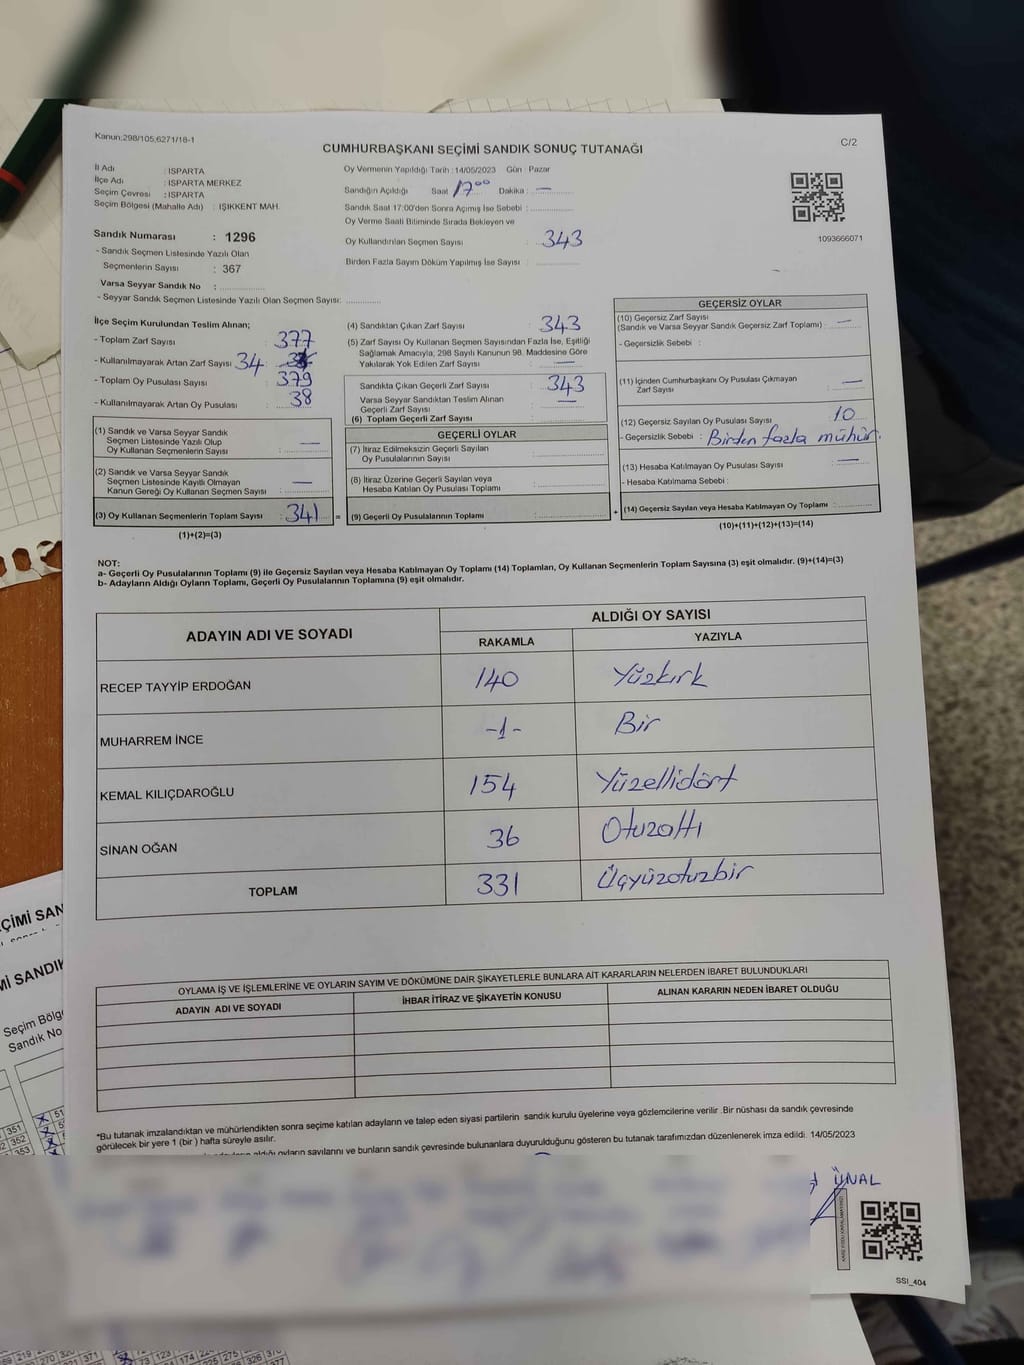 Kanun;298/105,6271/18-1
C/2
CUMHURBAŞKANI SEÇİMİ SANDIK SONUÇ TUTANAĞI
İl Adı : ISPARTA
İlçe Adı : ISPARTA MERKEZ
Seçim Çevresi : ISPARTA
Seçim Bölgesi (Mahalle Adı) : IŞIKKENT MAH.
Sandık Numarası : 1296
- Sandık Seçmen Listesinde Yazılı Olan
Seçmenlerin Sayısı : 367
Varsa Seyyar Sandık No : ....................
- Seyyar Sandık Seçmen Listesinde Yazılı Olan Seçmen Sayısı: ...............
Oy Vermenin Yapıldığı Tarih : 14/05/2023 Gün : Pazar
Sandığın Açıldığı Saat 17⁰⁰ Dakika : —
Sandık Saat 17:00'den Sonra Açılmış İse Sebebi : ...................
Oy Verme Saati Bitiminde Sırada Bekleyen ve
Oy Kullandırılan Seçmen Sayısı : 343
Birden Fazla Sayım Döküm Yapılmış İse Sayısı : ...................
1093666071
İlçe Seçim Kurulundan Teslim Alınan;
- Toplam Zarf Sayısı : 377
- Kullanılmayarak Artan Zarf Sayısı 34
- Toplam Oy Pusulası Sayısı : 379
- Kullanılmayarak Artan Oy Pusulası : 38
(1) Sandık ve Varsa Seyyar Sandık
Seçmen Listesinde Yazılı Olup
Oy Kullanan Seçmenlerin Sayısı : —
(2) Sandık ve Varsa Seyyar Sandık
Seçmen Listesinde Kayıtlı Olmayan
Kanun Gereği Oy Kullanan Seçmen Sayısı : —
(3) Oy Kullanan Seçmenlerin Toplam Sayısı : 341 =
(1)+(2)=(3)
(4) Sandıktan Çıkan Zarf Sayısı : 343
(5) Zarf Sayısı Oy Kullanan Seçmen Sayısından Fazla İse, Eşitliği
Sağlamak Amacıyla, 298 Sayılı Kanunun 98. Maddesine Göre
Yakılarak Yok Edilen Zarf Sayısı : —
Sandıkta Çıkan Geçerli Zarf Sayısı : 343
Varsa Seyyar Sandıktan Teslim Alınan
Geçerli Zarf Sayısı : —
(6) Toplam Geçerli Zarf Sayısı : ...................
GEÇERLİ OYLAR
(7) İtiraz Edilmeksizin Geçerli Sayılan
Oy Pusulalarının Sayısı : ...................
(8) İtiraz Üzerine Geçerli Sayılan veya
Hesaba Katılan Oy Pusulası Toplamı : ...................
(9) Geçerli Oy Pusulalarının Toplamı : ................... +
GEÇERSİZ OYLAR
(10) Geçersiz Zarf Sayısı
(Sandık ve Varsa Seyyar Sandık Geçersiz Zarf Toplamı) : —
- Geçersizlik Sebebi :
(11) İçinden Cumhurbaşkanı Oy Pusulası Çıkmayan
Zarf Sayısı : —
(12) Geçersiz Sayılan Oy Pusulası Sayısı : 10
- Geçersizlik Sebebi : Birden fazla mühür.
(13) Hesaba Katılmayan Oy Pusulası Sayısı : —
- Hesaba Katılmama Sebebi :
(14) Geçersiz Sayılan veya Hesaba Katılmayan Oy Toplamı : ............
(10)+(11)+(12)+(13)=(14)
NOT:
a- Geçerli Oy Pusulalarının Toplamı (9) ile Geçersiz Sayılan veya Hesaba Katılmayan Oy Toplamı (14) Toplamları, Oy Kullanan Seçmenlerin Toplam Sayısına (3) eşit olmalıdır. (9)+(14)=(3)
b- Adayların Aldığı Oyların Toplamı, Geçerli Oy Pusulalarının Toplamına (9) eşit olmalıdır.
ADAYIN ADI VE SOYADI
ALDIĞI OY SAYISI
RAKAMLA YAZIYLA
RECEP TAYYİP ERDOĞAN 140 Yüzkırk
MUHARREM İNCE -1- Bir
KEMAL KILIÇDAROĞLU 154 Yüzellidört
SİNAN OĞAN 36 Otuzaltı
TOPLAM 331 Üçyüzotuzbir
OYLAMA İŞ VE İŞLEMLERİNE VE OYLARIN SAYIM VE DÖKÜMÜNE DAİR ŞİKAYETLERLE BUNLARA AİT KARARLARIN NELERDEN İBARET BULUNDUKLARI
ADAYIN ADI VE SOYADI İHBAR İTİRAZ VE ŞİKAYETİN KONUSU ALINAN KARARIN NEDEN İBARET OLDUĞU
*Bu tutanak imzalandıktan ve mühürlendikten sonra seçime katılan adayların ve talep eden siyasi partilerin sandık kurulu üyelerine veya gözlemcilerine verilir .Bir nüshası da sandık çevresinde
görülecek bir yere 1 (bir ) hafta süreyle asılır.
aldığı oyların sayılarını ve bunların sandık çevresinde bulunanlara duyurulduğunu gösteren bu tutanak tarafımızdan düzenlenerek imza edildi. 14/05/2023
ÜNAL
SSI_404
ÇİMİ SAN
Mİ SANDIK
Seçim Bölg
Sandık No
351
352
353